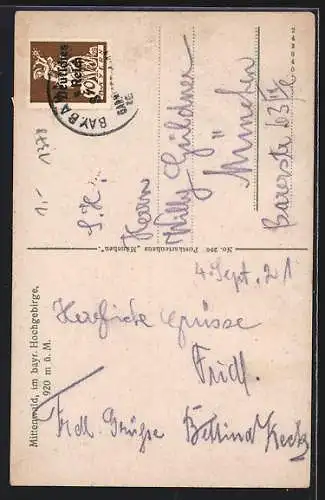 1,- 1378
Deutsches
Reich
BAYERN
40
BAY. BA
S. H.
Herrn
Willy Güldner
München
Barerstr. 63 IV/2
243940
No. 206 Postkartenhaus „München“.
4 Sept. 21
Herzliche Grüsse
Fridl.
Frdl. Grüße Bettina Keck
Mittenwald, im bayr. Hochgebirge,
920 m ü. M.